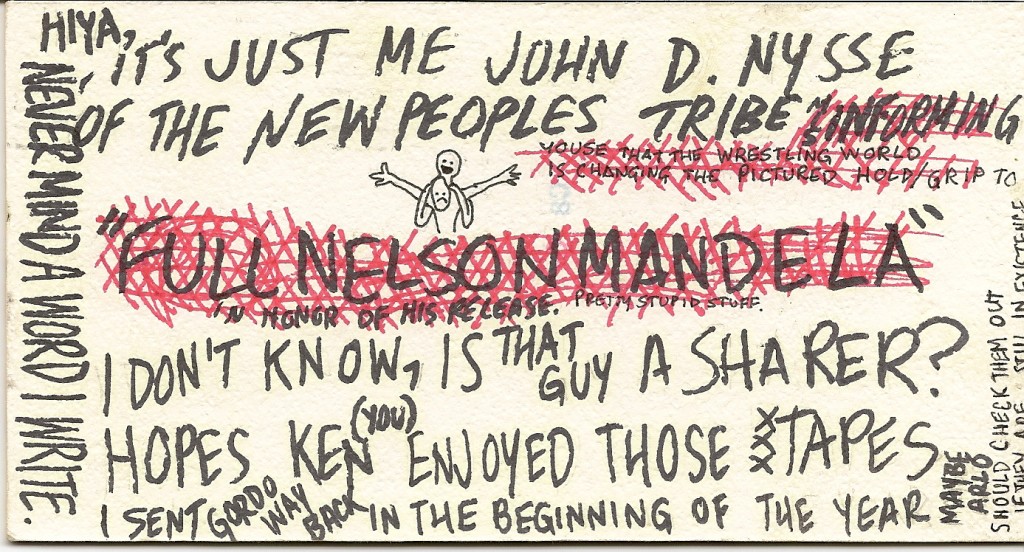 HIYA,
IT'S JUST ME JOHN D. NYSSE
OF THE NEW PEOPLES TRIBE INFORMING
YOUSE THAT THE WRESTLING WORLD
IS CHANGING THE PICTURED HOLD/GRIP TO
"FULL NELSON MANDELA"
IN HONOR OF HIS RELEASE. PRETTY STUPID STUFF.
I DON'T KNOW, IS THAT GUY A SHARER?
HOPES KEN (YOU) ENJOYED THOSE XXX TAPES
I SENT GORDO WAY BACK IN THE BEGINNING OF THE YEAR
MAYBE
ARLO
SHOULD CHECK THEM OUT
IF THEY ARE STILL IN EXISTENCE
NEVER MIND A WORD I WRITE.